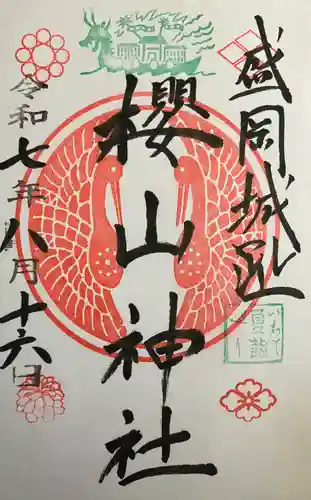 盛岡城跡
櫻山神社
令和七年八月十六日
いわて
夏詣